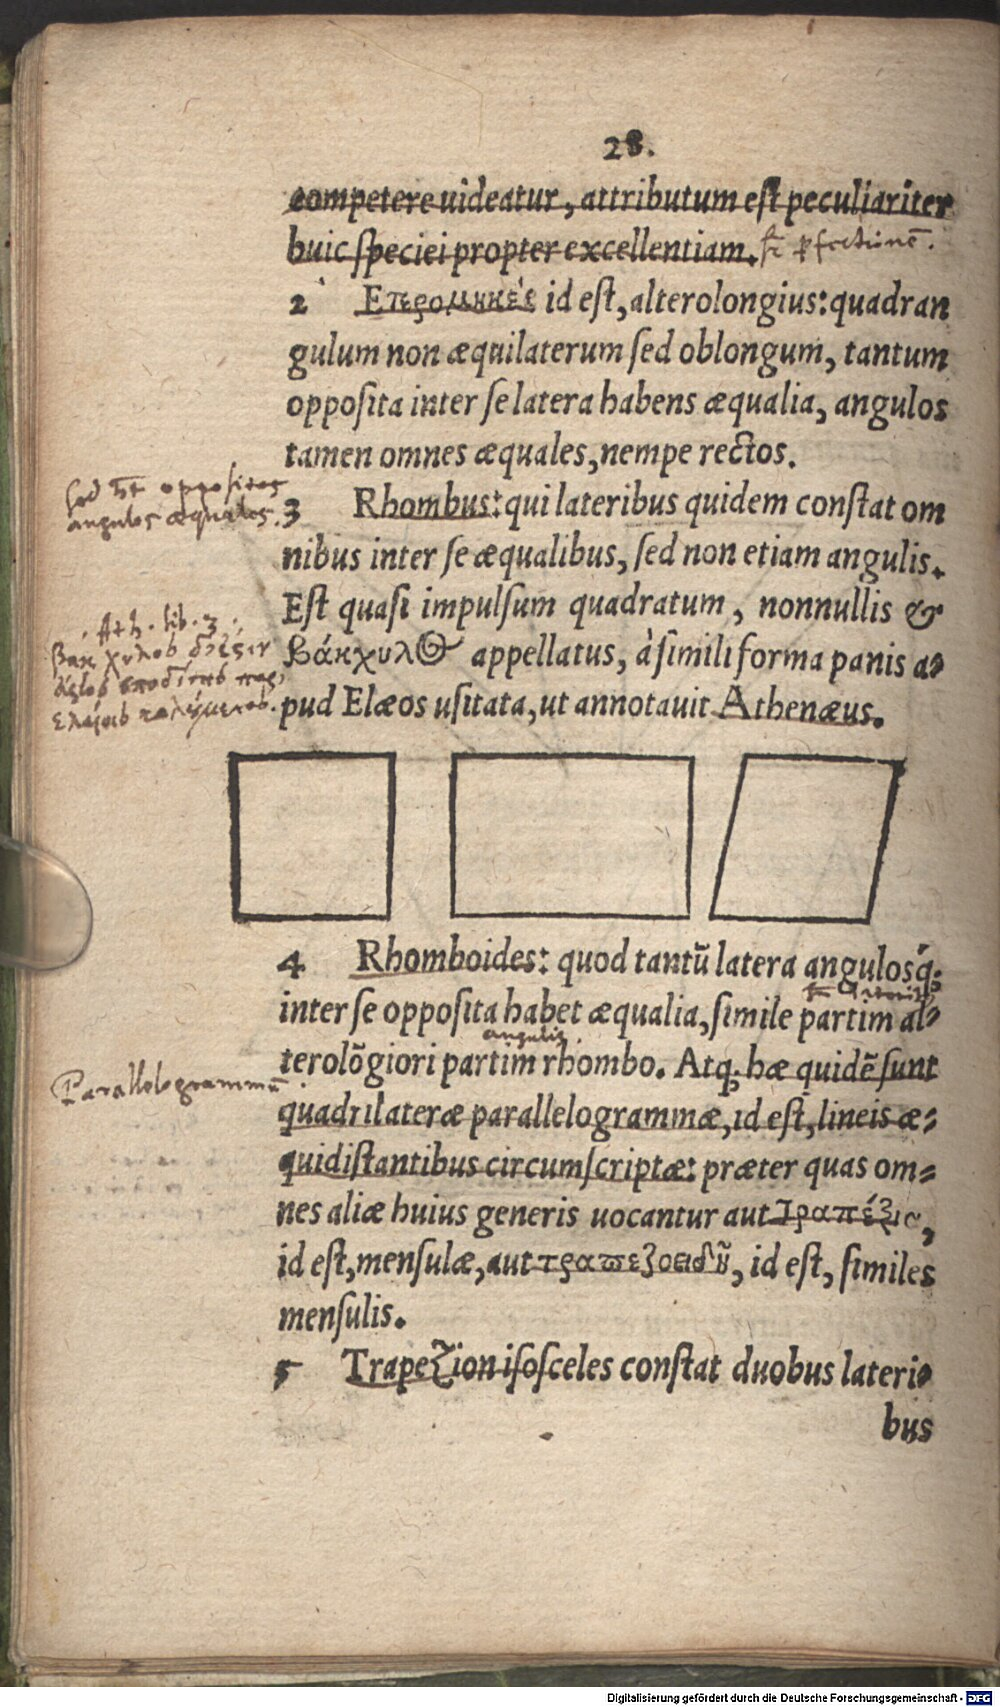 28.
competere uideatur, attributum est peculiariter
huic speciei propter excellentiam.
2 Ἑτερομηκὲς id est, alterolongius: quadran
gulum non æquilaterum sed oblongum, tantum
opposita inter se latera habens æqualia, angulos
tamen omnes æquales, nempe rectos.
oppositos
angulos æquales.
3 Rhombus: qui lateribus quidem constat om
nibus inter se æqualibus, sed non etiam angulis.
Est quasi impulsum quadratum, nonnullis &
Βάκχυλος appellatus, à simili forma panis a⸗
pud Elæos usitata, ut annotauit Athenæus.
Ath. lib. 3.
4 Rhomboides: quod tantũ latera angulosq́;
inter se opposita habet æqualia, simile partim al⸗
angulis
terolõgiori partim rhombo. Atq; hæ quidẽ sunt
Parallelogrammũ
quadrilateræ parallelogrammæ, id est, lineis æ⸗
quidistantibus circumscriptæ: præter quas om⸗
nes aliæ huius generis uocantur aut Τραπέζια,
id est, mensulæ, aut τραπεζοειδῆ, id est, similes
mensulis.
5 Trapezion isosceles constat duobus lateri⸗
bus
Digitalisierung gefördert durch die Deutsche Forschungsgemeinschaft - DFG